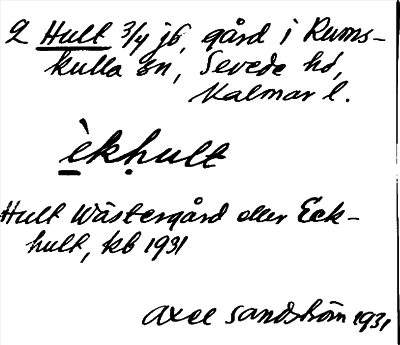 2 Hult 3/4 j6, gård i Rums-
kulla sn, Sevede hd,
Kalmar l.
èkḥult
Hult Wästergård eller Eck-
hult, kb 1931
Axel Sandström 1931